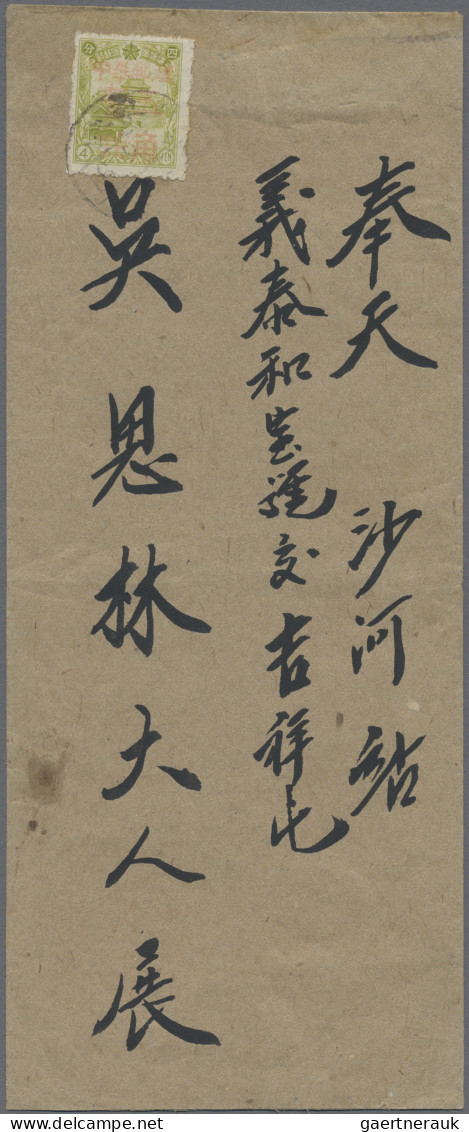 奉天 沙河站
義泰和宝號交吉祥屯
吳恩林大人展
分 四
4
delcampe.net
gaertnerauk